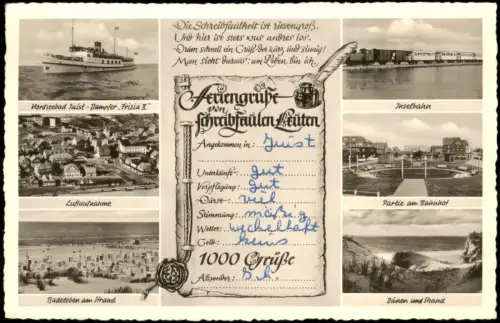 Die Schreibfaulheit ist riesengroß.
Und hier ist stets 'was andres' los.
Drum schnell ein Gruß der kurz und sinnig!
Man sieht daraus: um Leben bin ich.
Feriengrüße
von
schreibfaulen Leuten
Angekommen in: Juist
Unterkunft: gut
Verpflegung: gut
Durst: viel
Stimmung: mäßig
Wetter: wechelhaft
Geld: keins
1000 Grüße
Absender:
Nordseebad Juist - Dampfer „Frisia X"
Luftaufnahme
Badeleben am Strand
Inselbahn
Partie am Bahnhof
Dünen und Strand